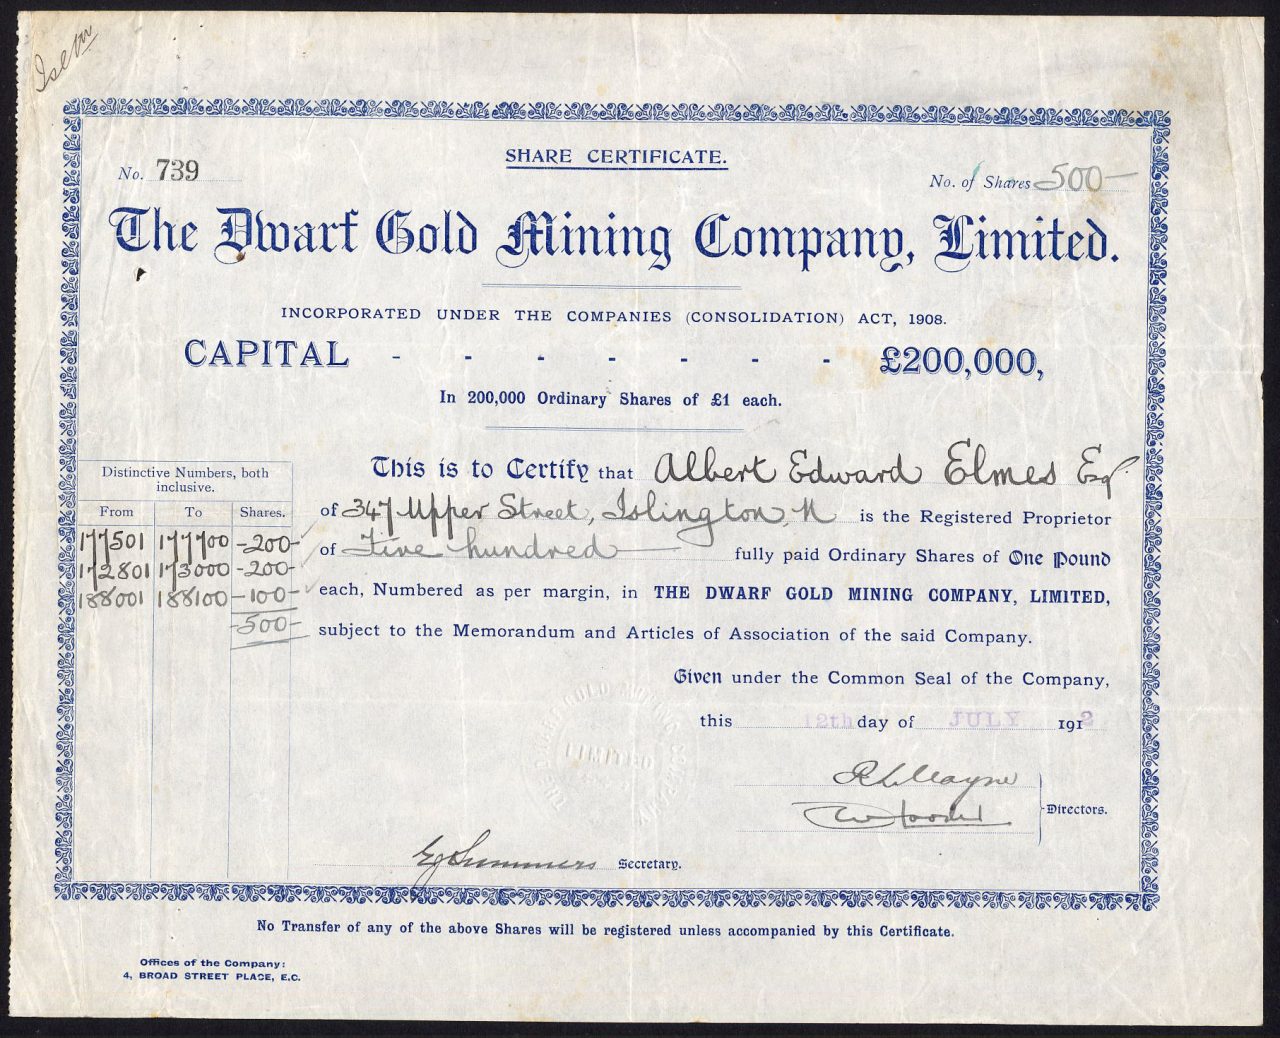 SHARE CERTIFICATE.
No. 739
No. of Shares 500—
The Dwarf Gold Mining Company, Limited.
INCORPORATED UNDER THE COMPANIES (CONSOLIDATION) ACT, 1908.
CAPITAL - - - - - - - £200,000,
In 200,000 Ordinary Shares of £1 each.
Distinctive Numbers, both
inclusive.
From To Shares.
177501 177700 -200-
172801 173000 -200-
188001 188100 -100-
-500-
This is to Certify that Albert Edward Elmes Esq.
of 347 Upper Street, Islington, N is the Registered Proprietor
of Five hundred fully paid Ordinary Shares of One Pound
each, Numbered as per margin, in THE DWARF GOLD MINING COMPANY, LIMITED,
subject to the Memorandum and Articles of Association of the said Company.
Given under the Common Seal of the Company,
this 12th day of JULY 1912
THE DWARF GOLD MINING COMPANY
LIMITED
R L Mayne
Directors.
Summers Secretary.
No Transfer of any of the above Shares will be registered unless accompanied by this Certificate.
Offices of the Company:
4, BROAD STREET PLACE, E.C.